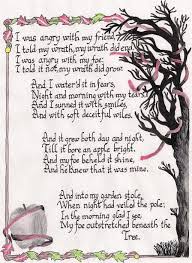 I was angry with my friend,
I told my wrath, my wrath did end.
I was angry with my foe:
I told it not, my wrath did grow.
And I water'd it in fears,
Night and morning with my tears;
And I sunned it with smiles
And with soft deceitful wiles.
And it grew both day and night,
Till it bore an apple bright.
And my foe beheld it shine,
And he knew that it was mine,
And into my garden stole,
When night had veil'd the pole;
In the morning glad I see,
My foe outstretched beneath the
Tree.